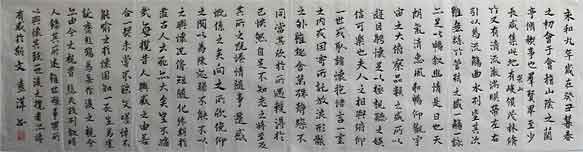 永和九年歲在癸丑暮春
之初會于會稽山陰之蘭
亭修禊事也羣賢畢至少
長咸集此地有崇山峻領茂林修
竹又有清流激湍暎帶左右
引以為流觴曲水列坐其次
雖無絲竹管弦之盛一觴一詠
亦足以暢敘幽情是日也天
朗氣清惠風和暢仰觀宇
宙之大俯察品類之盛所以
遊目騁懷足以極視聽之娛
信可樂也夫人之相與俯仰
一世或取諸懷抱悟言一室
之內或因寄所託放浪形骸
之外雖趣舍萬殊靜躁不
同當其欣於所遇暫得於
己快然自足不知老之將至及
其所之既倦情隨事遷感
慨係之矣向之所欣俛仰
之間以為陳迹猶不能不以
之興懷況脩短隨化終期於
盡古人云死生亦大矣豈不痛
哉每攬昔人興感之由若
合一契未嘗不臨文嗟悼不
能喻之於懷固知一死生為虛
誕齊彭殤為妄作後之視今
亦由今之視昔悲夫故列敘時
人錄其所述雖世殊事異所
以興懷其致一也後之攬者亦將
有感於斯文